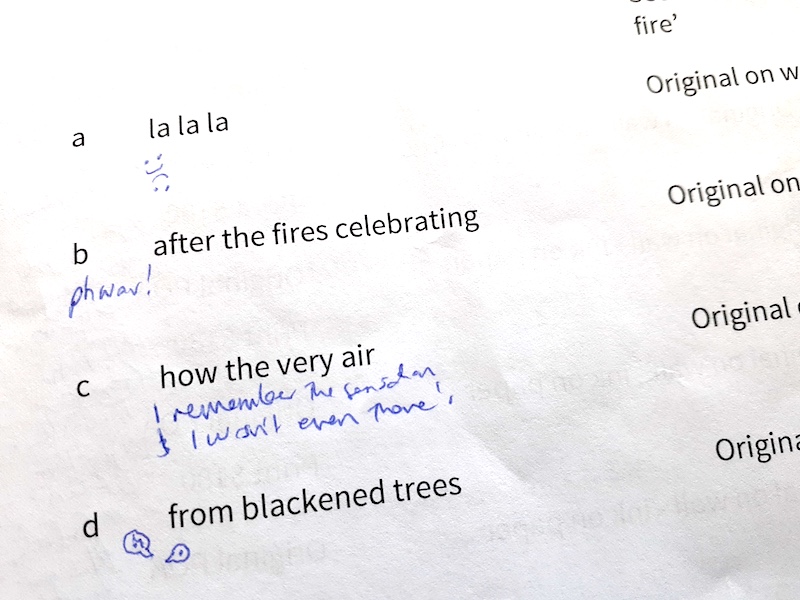 fire’
Original on w
a la la la
Original on
b after the fires celebrating
phwar!
Original
c how the very air
I remember the sensation
& I wasn't even there!
Origina
d from blackened trees